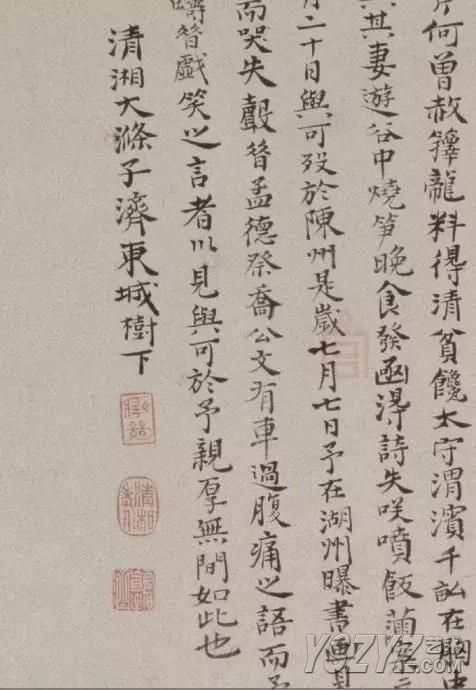 何曾赦籜龍料得清貧饞太守渭濱千畝在胸中
其妻遊谷中燒筍晚食發函得詩失咲噴飯滿案
月二十日與可歿於陳州是歲七月七日予在湖州曝書畫見
而哭失聲昔孟德祭喬公文有車過腹痛之語而予
疇昔戲笑之言者以見與可於予親厚無間如此也
清湘大滌子濟東城樹下
清湘老人